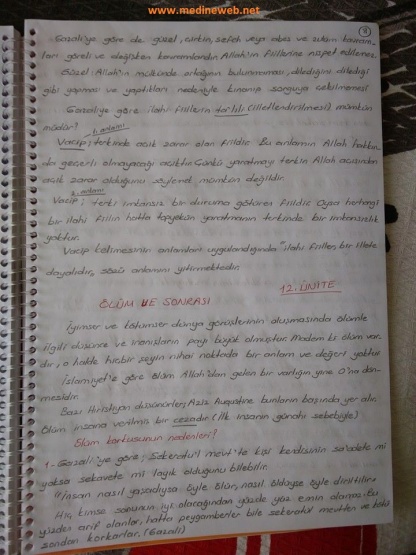 www.medineweb.net
Gazali'ye göre de güzel, çirkin, sefeh veya abes ve zulüm kavram-
ları göreli ve değişken kavramlardır. Allah'ın fiillerine nispet edilemez.
Güzel Allah'ın mülkünde ortağının bulunmaması, dilediğine dilediği
gibi yapması ve yaptıkları nedeniyle kınanıp sorguya çekilmemesi
Gazali'ye göre ilahi fiillerin ta'lil (illetlendirilmesi) mümkün
müdür?
1. anlamı
Vacip; terkinde açık zarar olan fiildir. Bu anlamın Allah hakkın-
da geçerli olmayacağı açıktır. Çünkü yaratmayı terkin Allah açısından
açık zarar olduğunu söylemek mümkün değildir.
2. anlamı
Vacip; terki imkansız bir duruma götüren fiildir. Oysa herhangi
bir ilahi fiilin hatta topyekün yaratmanın terkinde bir imkansızlık
yoktur.
Vacip kelimesinin anlamları uygulandığında "ilahi fiiller bir illete
dayalıdır" sözü anlamını yitirmektedir.
12. ÜNİTE
ÖLÜM VE SONRASI
İyimser ve kötümser dünya görüşlerinin oluşmasında ölümle
ilgili düşünce ve inanışların payı büyük olmuştur. Madem ki ölüm var-
dır, o halde hiçbir şeyin nihai noktada bir anlam ve değeri yoktur.
İslamiyet'e göre ölüm Allah'dan gelen bir varlığın yine O'na dön-
mesidir.
Bazı Hristiyan düşünürler; Aziz Augustine bunların başında yer alır.
Ölüm insana verilmiş bir cezadır. (İlk insanın günahı sebebiyle)
Ölüm korkusunun nedenleri?
1- Gazali'ye göre; Sekeratu'l mevt'te kişi kendisinin sa'adete mi
yoksa şekavete mi layık olduğunu bilebilir.
"İnsan nasıl yaşadıysa öyle ölür, nasıl öldüyse öyle diriltilir"
Hiç kimse sonunun iyi olacağından yüzde yüz emin olamaz. Bu
yüzden arif olanlar, hatta peygamberler bile sekeratül mevtten ve kötü
sondan korkarlar. (Gazali)